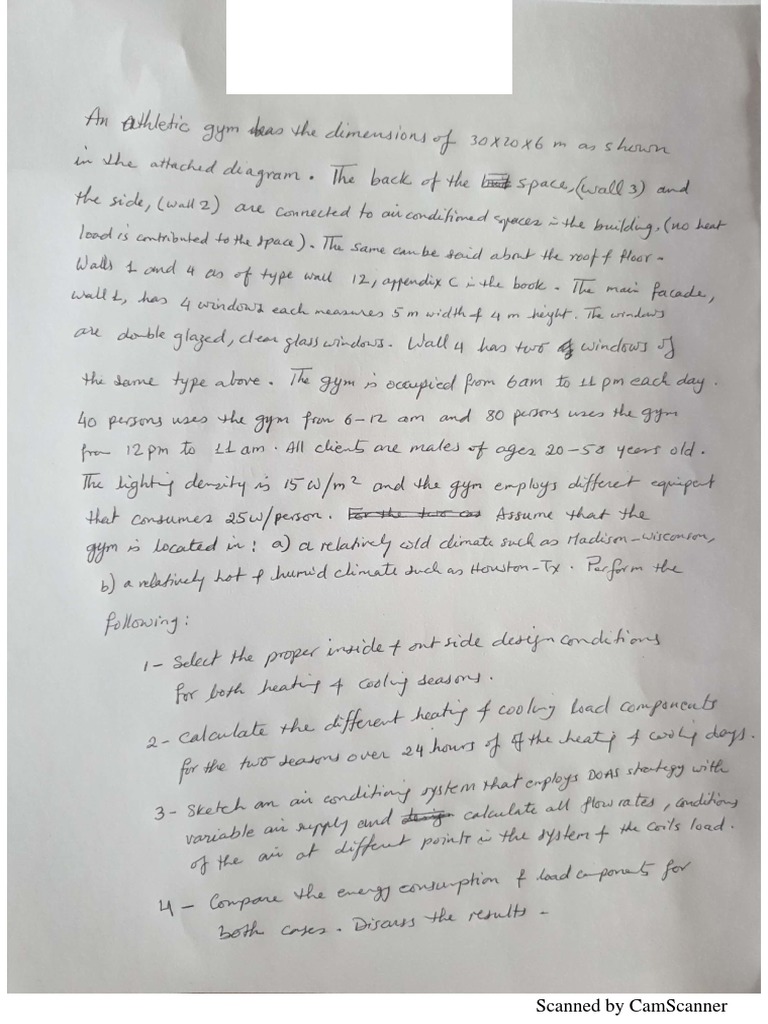 An athletic gym has the dimensions of 30x20x6 m as shown
in the attached diagram. The back of the space, (wall 3) and
the side, (wall 2) are connected to air conditioned spaces in the building, (no heat
load is contributed to the space). The same can be said about the roof & floor.
Walls 1 and 4 as of type wall 12, appendix C in the book. The main facade,
wall 1, has 4 windows each measures 5 m width & 4 m height. The windows
are double glazed, clear glass windows. Wall 4 has two windows of
the same type above. The gym is occupied from 6am to 11 pm each day.
40 persons uses the gym from 6-12 am and 80 persons uses the gym
from 12 pm to 11 am. All clients are males of ages 20-50 years old.
The lighting density is 15 W/m² and the gym employs different equipent
that consumes 25W/person. Assume that the
gym is located in: a) a relatively cold climate such as Madison-Wisconson,
b) a relatively hot & humid climate such as Houston-Tx. Perform the
following:
1- Select the proper inside & out side design conditions
for both heating & cooling seasons.
2- Calculate the different heating & cooling load components
for the two seasons over 24 hours of the heating & cooling days.
3- Sketch an air conditioning system that employs DOAS strategy with
variable air supply and calculate all flow rates, conditions
of the air at different points in the system & the coils load.
4- Compare the energy consumption & load components for
both cases. Discuss the results-
Scanned by CamScanner